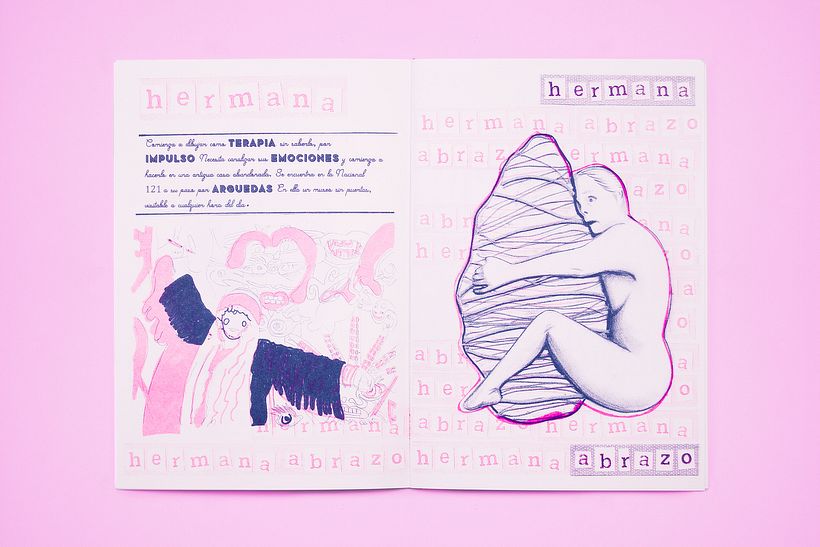 hermana
Comienza a dibujar como TERAPIA sin saberlo, por
IMPULSO Necesita canalizar sus EMOCIONES y comienza a
hacerlo en una antigua casa abandonada. Se encuentra en la Nacional
121 a su paso por ARGUEDAS En ella un museo sin puertas,
visitable a cualquier hora del día.
hermana
hermana abrazo
hermana
hermana abrazo
abrazo hermana
azo
abr
he
a
zo
a
o
ab zo
he a
abrazo hermana
hermana abrazo